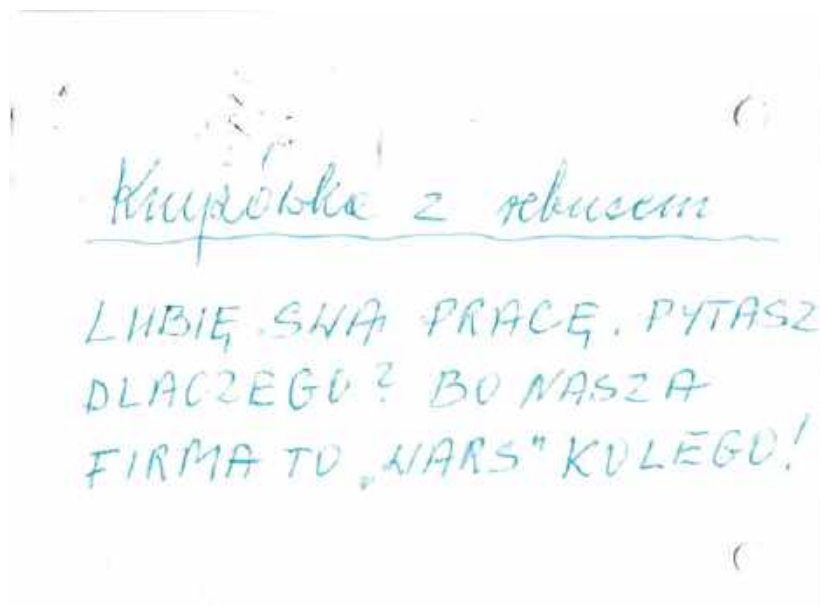 Krzyżówka z rebusem
LUBIĘ SWĄ PRACĘ. PYTASZ
DLACZEGO? BO NASZA
FIRMA TO „WARS" KOLEGO!